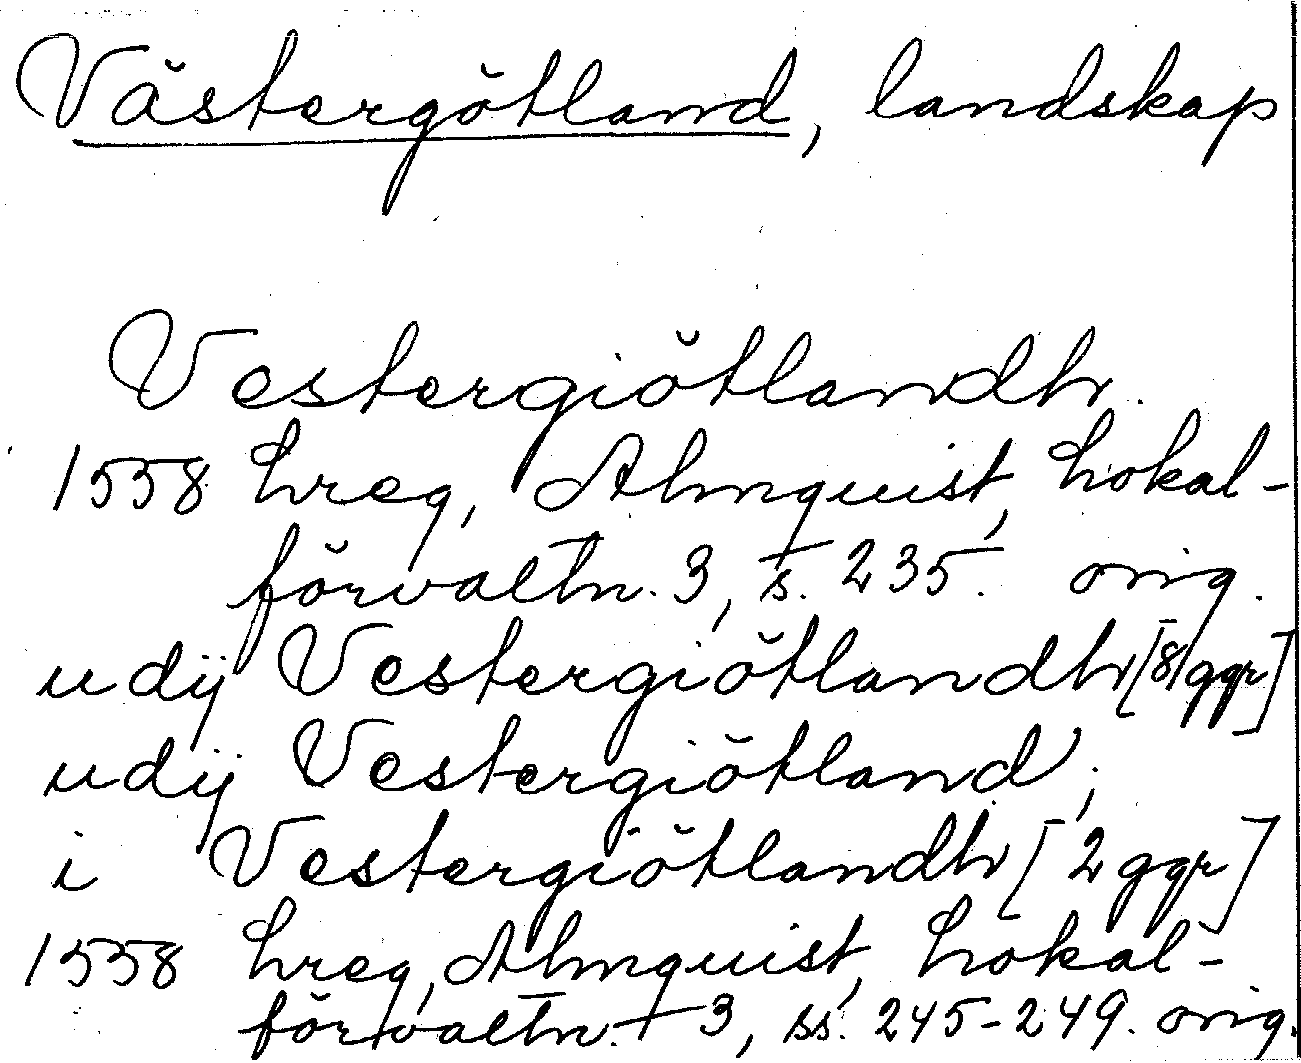 Västergötland, landskap
Vestergiötlandh.
1558 hreg, Almquist, Lokal-
förvaltn. 3, s. 235. orig.
udij Vestergiötlandh [8 ggr]
udij Vestergiötland;
i Vestergiötlandh [2 ggr]
1558 hreg, Almquist, Lokal-
förvaltn. 3, ss. 245-249. orig.